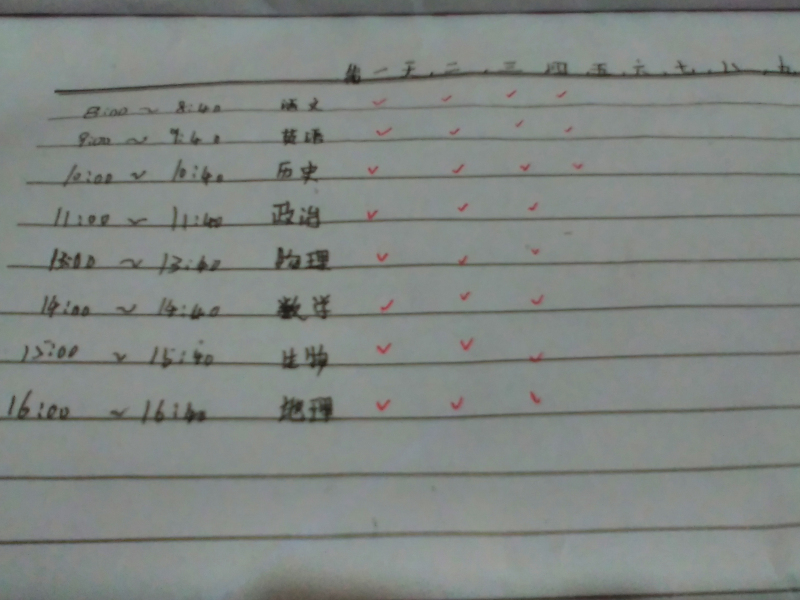 第一天.二.三.四.五.六.七.八.九
8:00 ~ 8:40 语文 ✓ ✓ ✓ ✓
9:00 ~ 9:40 英语 ✓ ✓ ✓ ✓
10:00 ~ 10:40 历史 ✓ ✓ ✓ ✓
11:00 ~ 11:40 政治 ✓ ✓ ✓
13:00 ~ 13:40 物理 ✓ ✓ ✓
14:00 ~ 14:40 数学 ✓ ✓ ✓
15:00 ~ 15:40 生物 ✓ ✓ ✓
16:00 ~ 16:40 地理 ✓ ✓ ✓